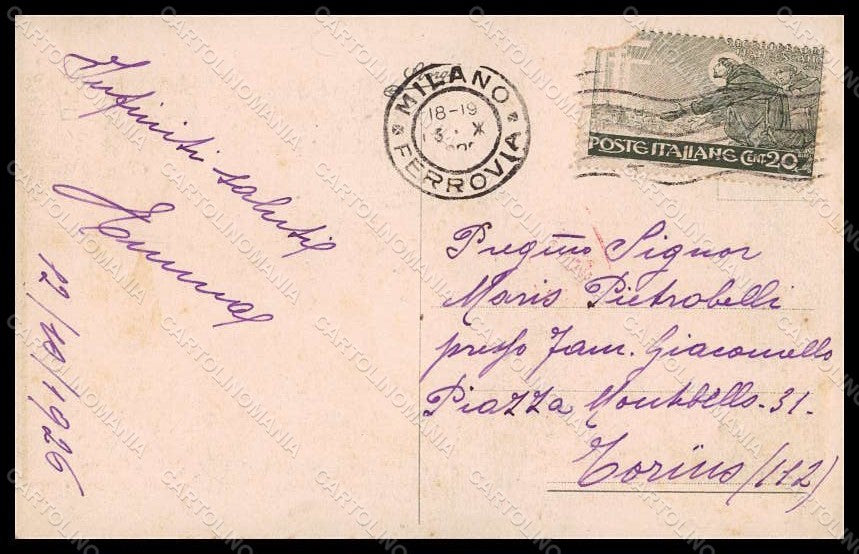 Infiniti saluti
12/10/1926
MILANO
18-19
X
FERROVIA
POSTE ITALIANE CENT. 20
Preg.mo Signor
Maris Pietrobelli
presso Fam. Giacomello
Piazza Montebello - 31.
Torino (112)
CARTOLINOMANIA